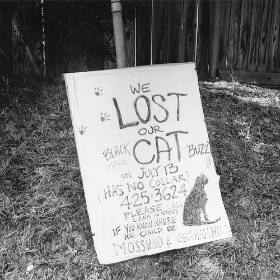 WE
LOST
OUR
CAT
BLACK BUZZ
ON JULY 13
(HAS NO COLLAR)
425-3624
PLEASE
IF YOU KNOW WHERE
HE COULD BE
MOSSWOOD &